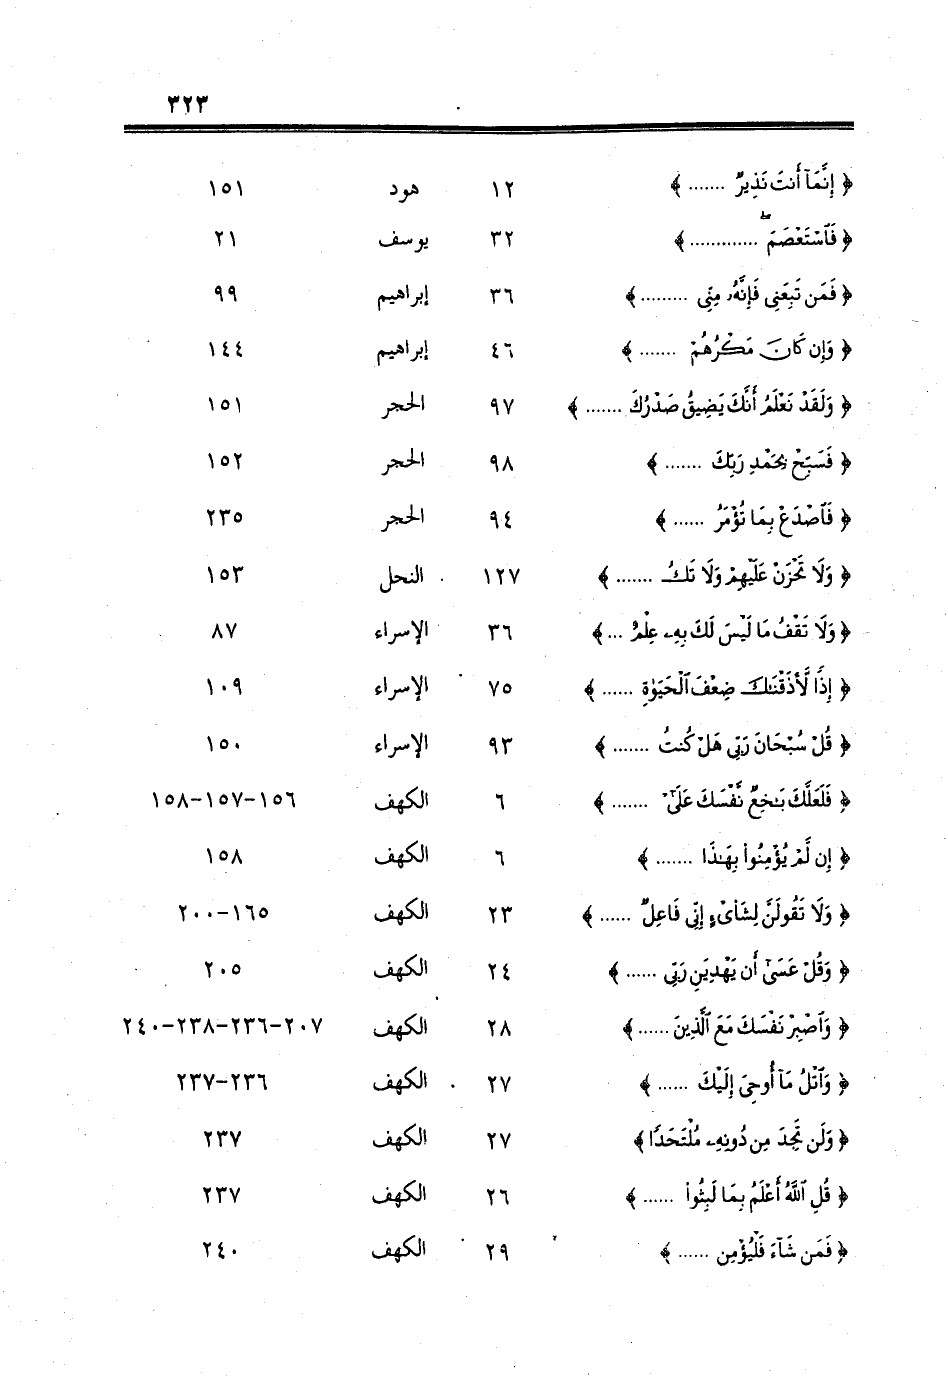 ٣٢٣
﴿ إِنَّمَآ أَنتَ نَذِيرٌ ....... ﴾ ١٢ هود ١٥١
﴿ فَٱسْتَعْصَمَ ۖ ............. ﴾ ٣٢ يوسف ٢١
﴿ فَمَن تَبِعَنِى فَإِنَّهُۥ مِنِّى ......... ﴾ ٣٦ إبراهيم ٩٩
﴿ وَإِن كَانَ مَكْرُهُمْ ....... ﴾ ٤٦ إبراهيم ١٤٤
﴿ وَلَقَدْ نَعْلَمُ أَنَّكَ يَضِيقُ صَدْرُكَ ....... ﴾ ٩٧ الحجر ١٥١
﴿ فَسَبِّحْ بِحَمْدِ رَبِّكَ ....... ﴾ ٩٨ الحجر ١٥٢
﴿ فَٱصْدَعْ بِمَا تُؤْمَرُ ...... ﴾ ٩٤ الحجر ٢٣٥
﴿ وَلَا تَحْزَنْ عَلَيْهِمْ وَلَا تَكُ ....... ﴾ ١٢٧ النحل ١٥٣
﴿ وَلَا تَقْفُ مَا لَيْسَ لَكَ بِهِۦ عِلْمٌ ... ﴾ ٣٦ الإسراء ٨٧
﴿ إِذًا لَّأَذَقْنَٰكَ ضِعْفَ ٱلْحَيَوٰةِ ...... ﴾ ٧٥ الإسراء ١٠٩
﴿ قُلْ سُبْحَانَ رَبِّى هَلْ كُنتُ ....... ﴾ ٩٣ الإسراء ١٥٠
﴿ فَلَعَلَّكَ بَٰخِعٌ نَّفْسَكَ عَلَىٰٓ ....... ﴾ ٦ الكهف ١٥٦-١٥٧-١٥٨
﴿ إِن لَّمْ يُؤْمِنُوا۟ بِهَٰذَا ....... ﴾ ٦ الكهف ١٥٨
﴿ وَلَا تَقُولَنَّ لِشَا۟ىْءٍ إِنِّى فَاعِلٌ ...... ﴾ ٢٣ الكهف ١٦٥-٢٠٠
﴿ وَقُلْ عَسَىٰٓ أَن يَهْدِيَنِ رَبِّى ...... ﴾ ٢٤ الكهف ٢٠٥
﴿ وَٱصْبِرْ نَفْسَكَ مَعَ ٱلَّذِينَ ...... ﴾ ٢٨ الكهف ٢٠٧-٢٣٦-٢٣٨-٢٤٠
﴿ وَٱتْلُ مَآ أُوحِىَ إِلَيْكَ ...... ﴾ ٢٧ الكهف ٢٣٦-٢٣٧
﴿ وَلَن تَجِدَ مِن دُونِهِۦ مُلْتَحَدًا ﴾ ٢٧ الكهف ٢٣٧
﴿ قُلِ ٱللَّهُ أَعْلَمُ بِمَا لَبِثُوا۟ ...... ﴾ ٢٦ الكهف ٢٣٧
﴿ فَمَن شَآءَ فَلْيُؤْمِن ...... ﴾ ٢٩ الكهف ٢٤٠